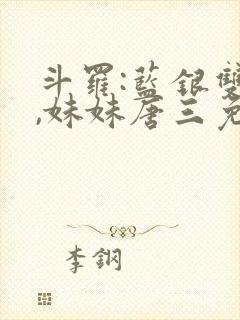 斗羅:藍銀雙
,妹妹唐三免
李鋼